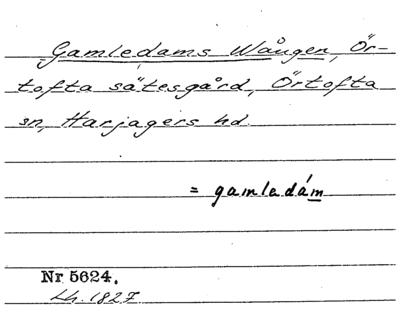 Gamledams Wången, Ör-
tofta sätesgård, Örtofta
sn, Harjagers hd.
= gamledám
Nr 5624.
Lh. 1827